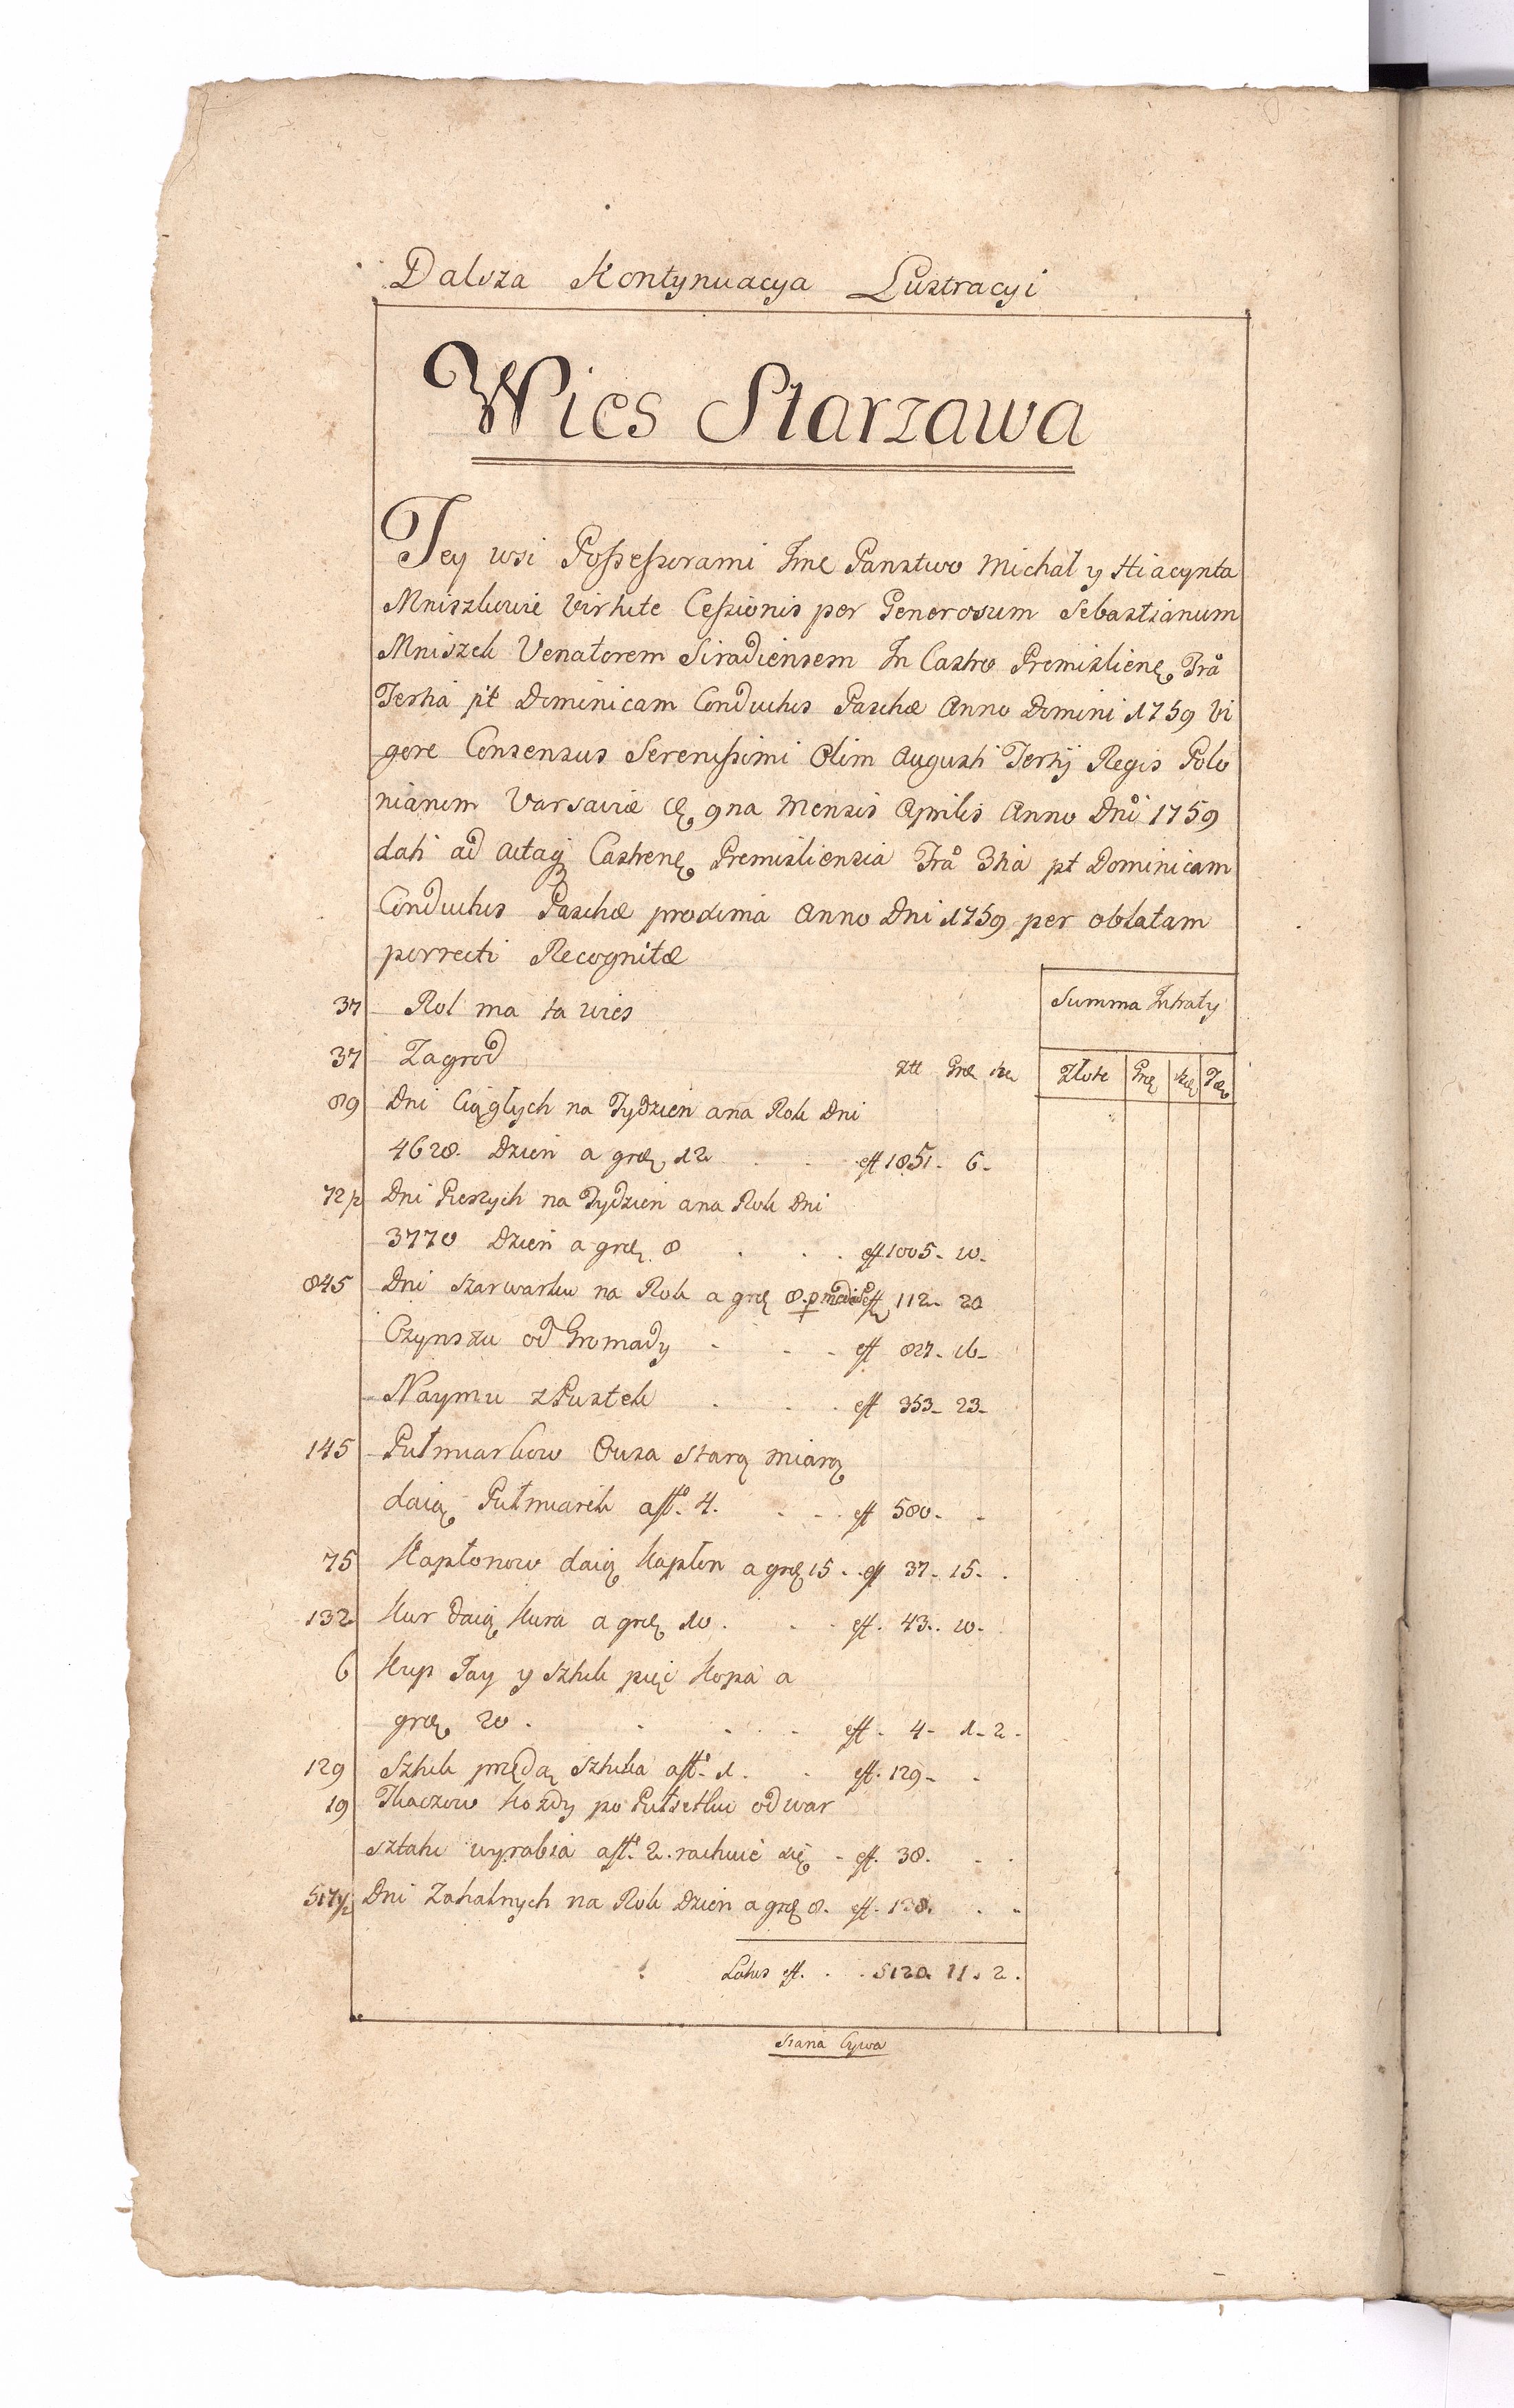 Dalsza Kontynuacya Lustracyi
Wies Starzawa
Tey wsi Possessorami Jmć Panstwo Michał y Hiacynta
Mniszkowie Virtute Cessionis per Generosum Sebastianum
Mniszek Venatorem Siradiensem In Castro Premisliene Fra
Tertia pt Dominicam Conductus Paschæ Anno Domini 1759 Vi
gore Consensus Serenissimi Olim Augusti Tertij Regis Polo
niarum Varsaviæ 9na Mensis Aprilis Anno Dni 1759
dati ad Actaq Castrene Premisliensia Fra 3tia pt Dominicam
Conductus Paschæ proxima Anno Dni 1759 per oblatam
porrecti Recognitæ
37 Rol ma ta wies Summa Intraty
37 Zagrod złł Grę sze Złote Grę sze
89 Dni Ciągłych na Tydzien ana Rok Dni
4628. Dzien a grę 12 . . eff 1851. 6.
72½ Dni Pieszych na Tydzien ana Rok Dni
3770 Dzień a grę 8 . . . eff 1005. 10.
845 Dni szarwarku na Rok a grę 8. p eff 112. 20
Czynszu od Gromady . . . eff 827. 16.
Naymu z Pustek . . . eff 353. 23.
145 Pułmiarkow Owsa starą miarą
daią Pułmiarek a fl. 4. . . . eff 580. .
75 Kapłonow daią Kapłon a grę 15 . . eff 37. 15. .
132 Kur daią Kura a grę 10 . . . eff. 43. 10.
6 Kup Jay y sztuk pięć Kopa a
grę 20 . . . . eff. 4. 1. 2.
129 Sztuk przędą sztuka a fl. 1. . eff. 129. .
19 Tkaczow kozdy po Pułsetku od war
sztatu wyrabia a fl. 2. rachuie się . eff. 38. . .
517½ Dni Zahalnych na Rok Dzien a grę 8. eff. 138. . .
Latus eff. . . 5120. 11. 2.